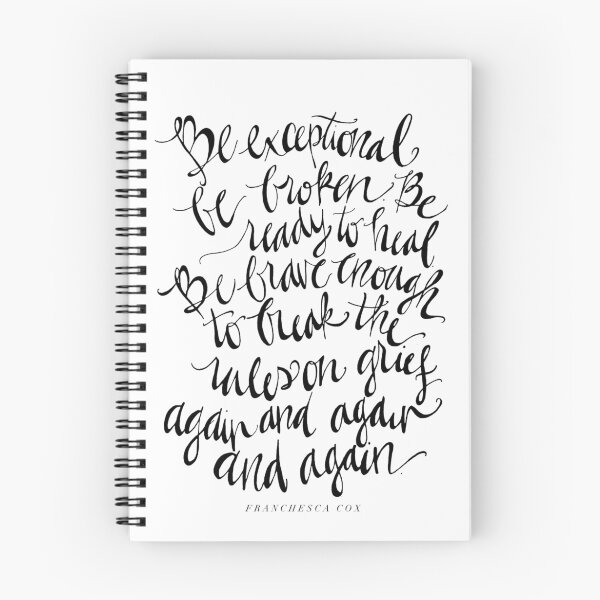 Be exceptional
be broken. Be
ready to heal
Be brave enough
to break the
rules on grief
again and again
and again.
FRANCHESCA COX